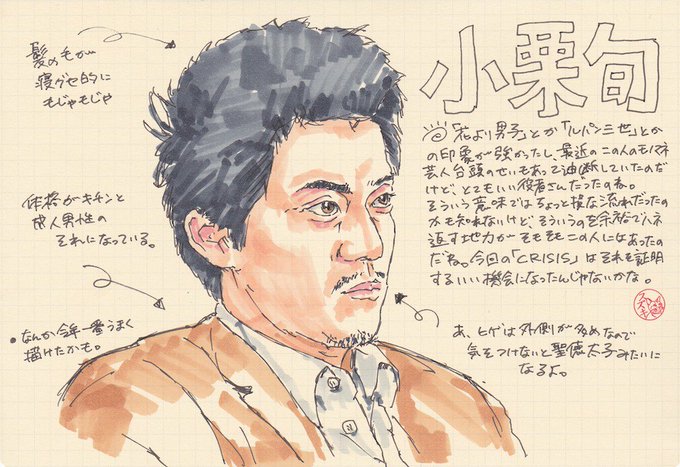 小栗旬
髪の毛が
寝グセ的に
もじゃもじゃ
「花より男子」とか「ルパン三世」とか
の印象が強かったし、最近この人のモノマネ
芸人台頭のせいもあって油断していたのだ
けど、とてもいい役者さんだったのね。
そういう意味ではちょっと損な流れだったの
かも知れないけど、そういうのを余裕でハネ
返す地力がそもそもこの人にはあったの
だね。今回の「CRISIS」はそれを証明
するいい機会になったんじゃないかな。
体格がキチンと
成人男性の
それになっている。
・なんか今年一番うまく
描けたかも。
あ、ヒゲは外側が多めなので
気をつけないと聖徳太子みたいに
なるよ。